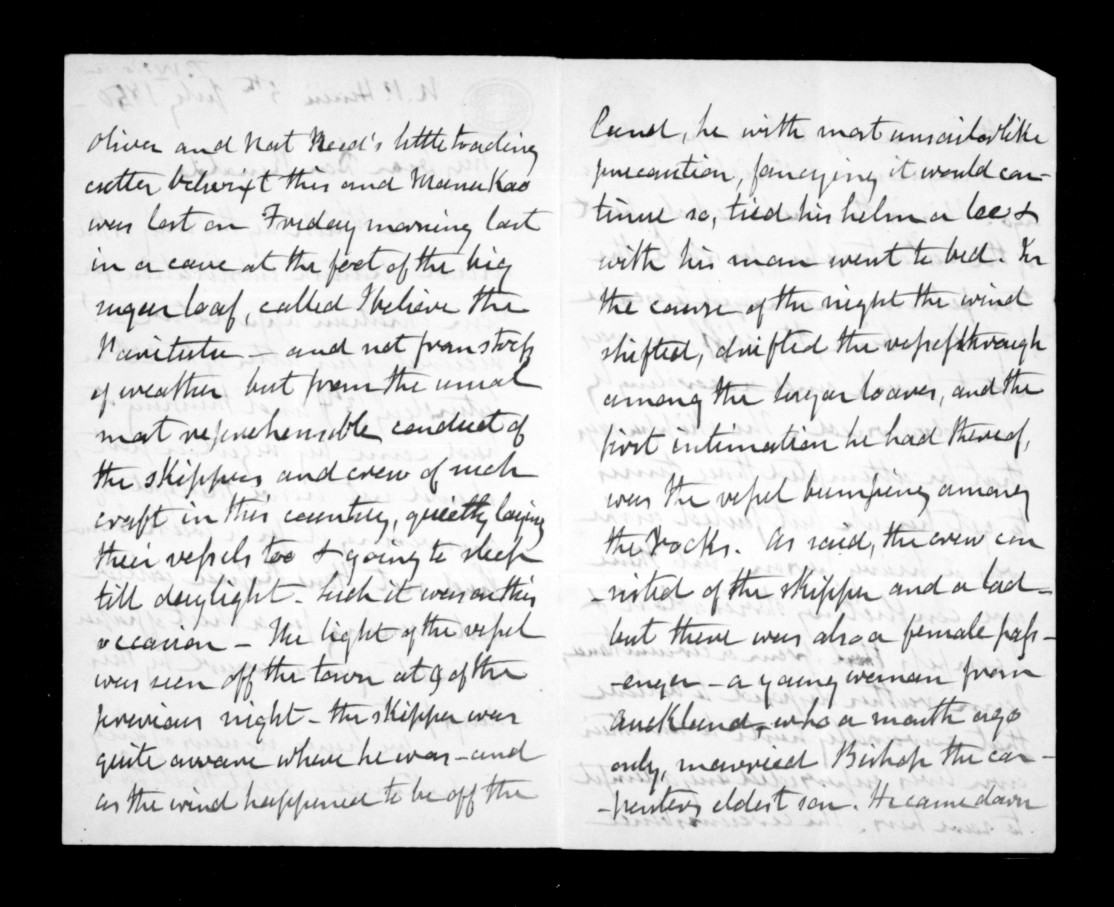 Oliver and Nat Reed's little trading
cutter betwixt this and Manukao
was lost on Friday morning last
in a cave at the foot of the big
sugar loaf, called I believe the
– and not from stress
of weather but from the usual
most reprehensible conduct of
the skippers and crew of such
craft in this country, quietly laying
their vessels too & going to sleep
till daylight – Such it was on this
occasion – The light of the vessel
was seen off the town at 9 of the
previous night – the skipper was
quite aware where he was – and
as the wind happened to be off the
land, he with most unsailorlike
precaution, fancying it would con-
tinue so, tied his helm a lee &
with his man went to bed. In
the course of the night the wind
shifted, drifted the vessel through
among the Sugar loaves, and the
first intimation he had thereof,
was the vessel bumping among
the Rocks. As said, the crew con
-sisted of the skipper and a lad –
but there was also a female pass-
-enger – a young woman from
Auckland, who a month ago
only, married Bishop the car-
-penters eldest son. He came down